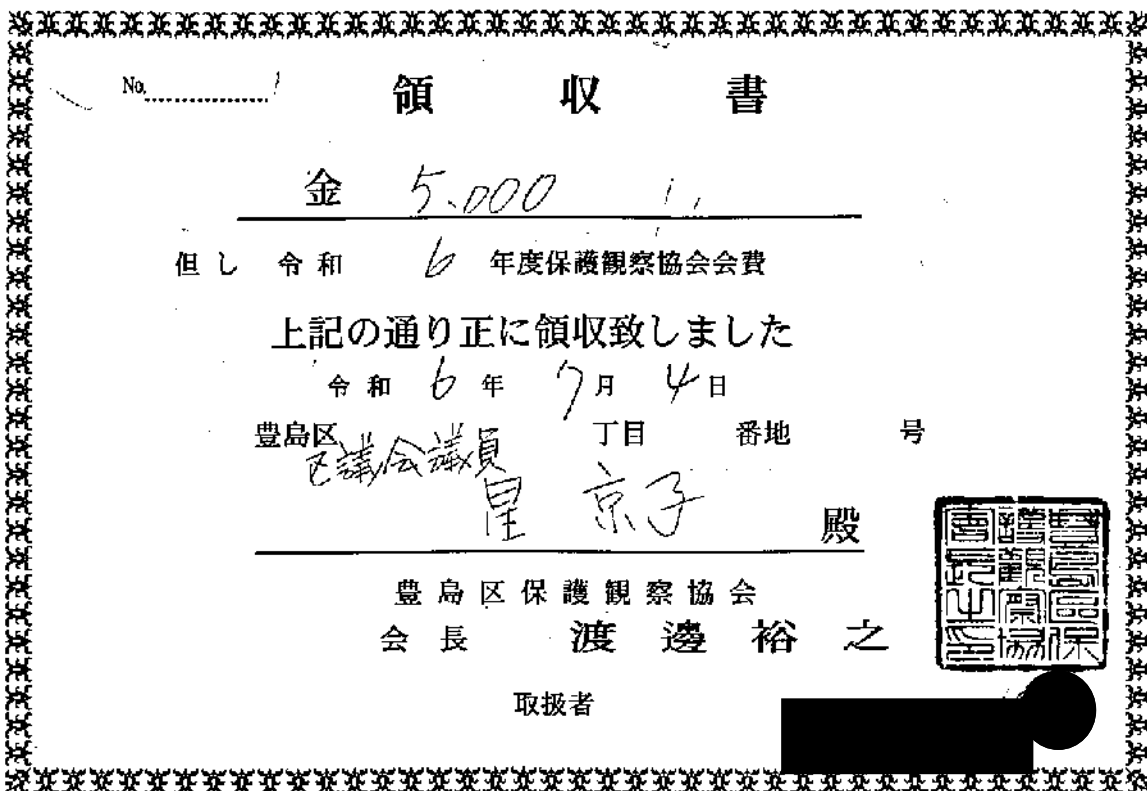 No.
領収書
金 5,000
但し 令和 6 年度保護観察協会会費
上記の通り正に領収致しました
令和 6 年 7 月 4 日
豊島区 丁目 番地 号
区議会議員
星 京子 殿
豊島区保護観察協会
会長 渡邊裕之
豊島区保護観察協会会長之印
取扱者